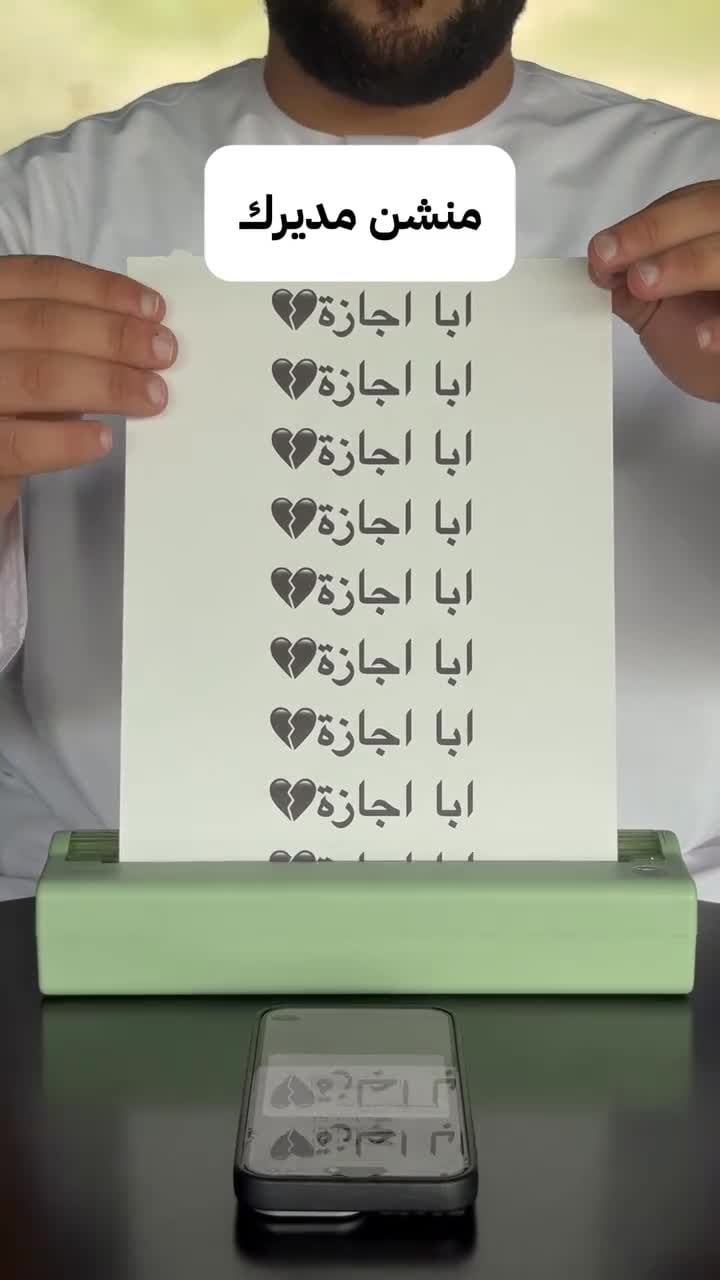 منشن مديرك
ابا اجازة💔
ابا اجازة💔
ابا اجازة💔
ابا اجازة💔
ابا اجازة💔
ابا اجازة💔
ابا اجازة💔
ابا اجازة💔